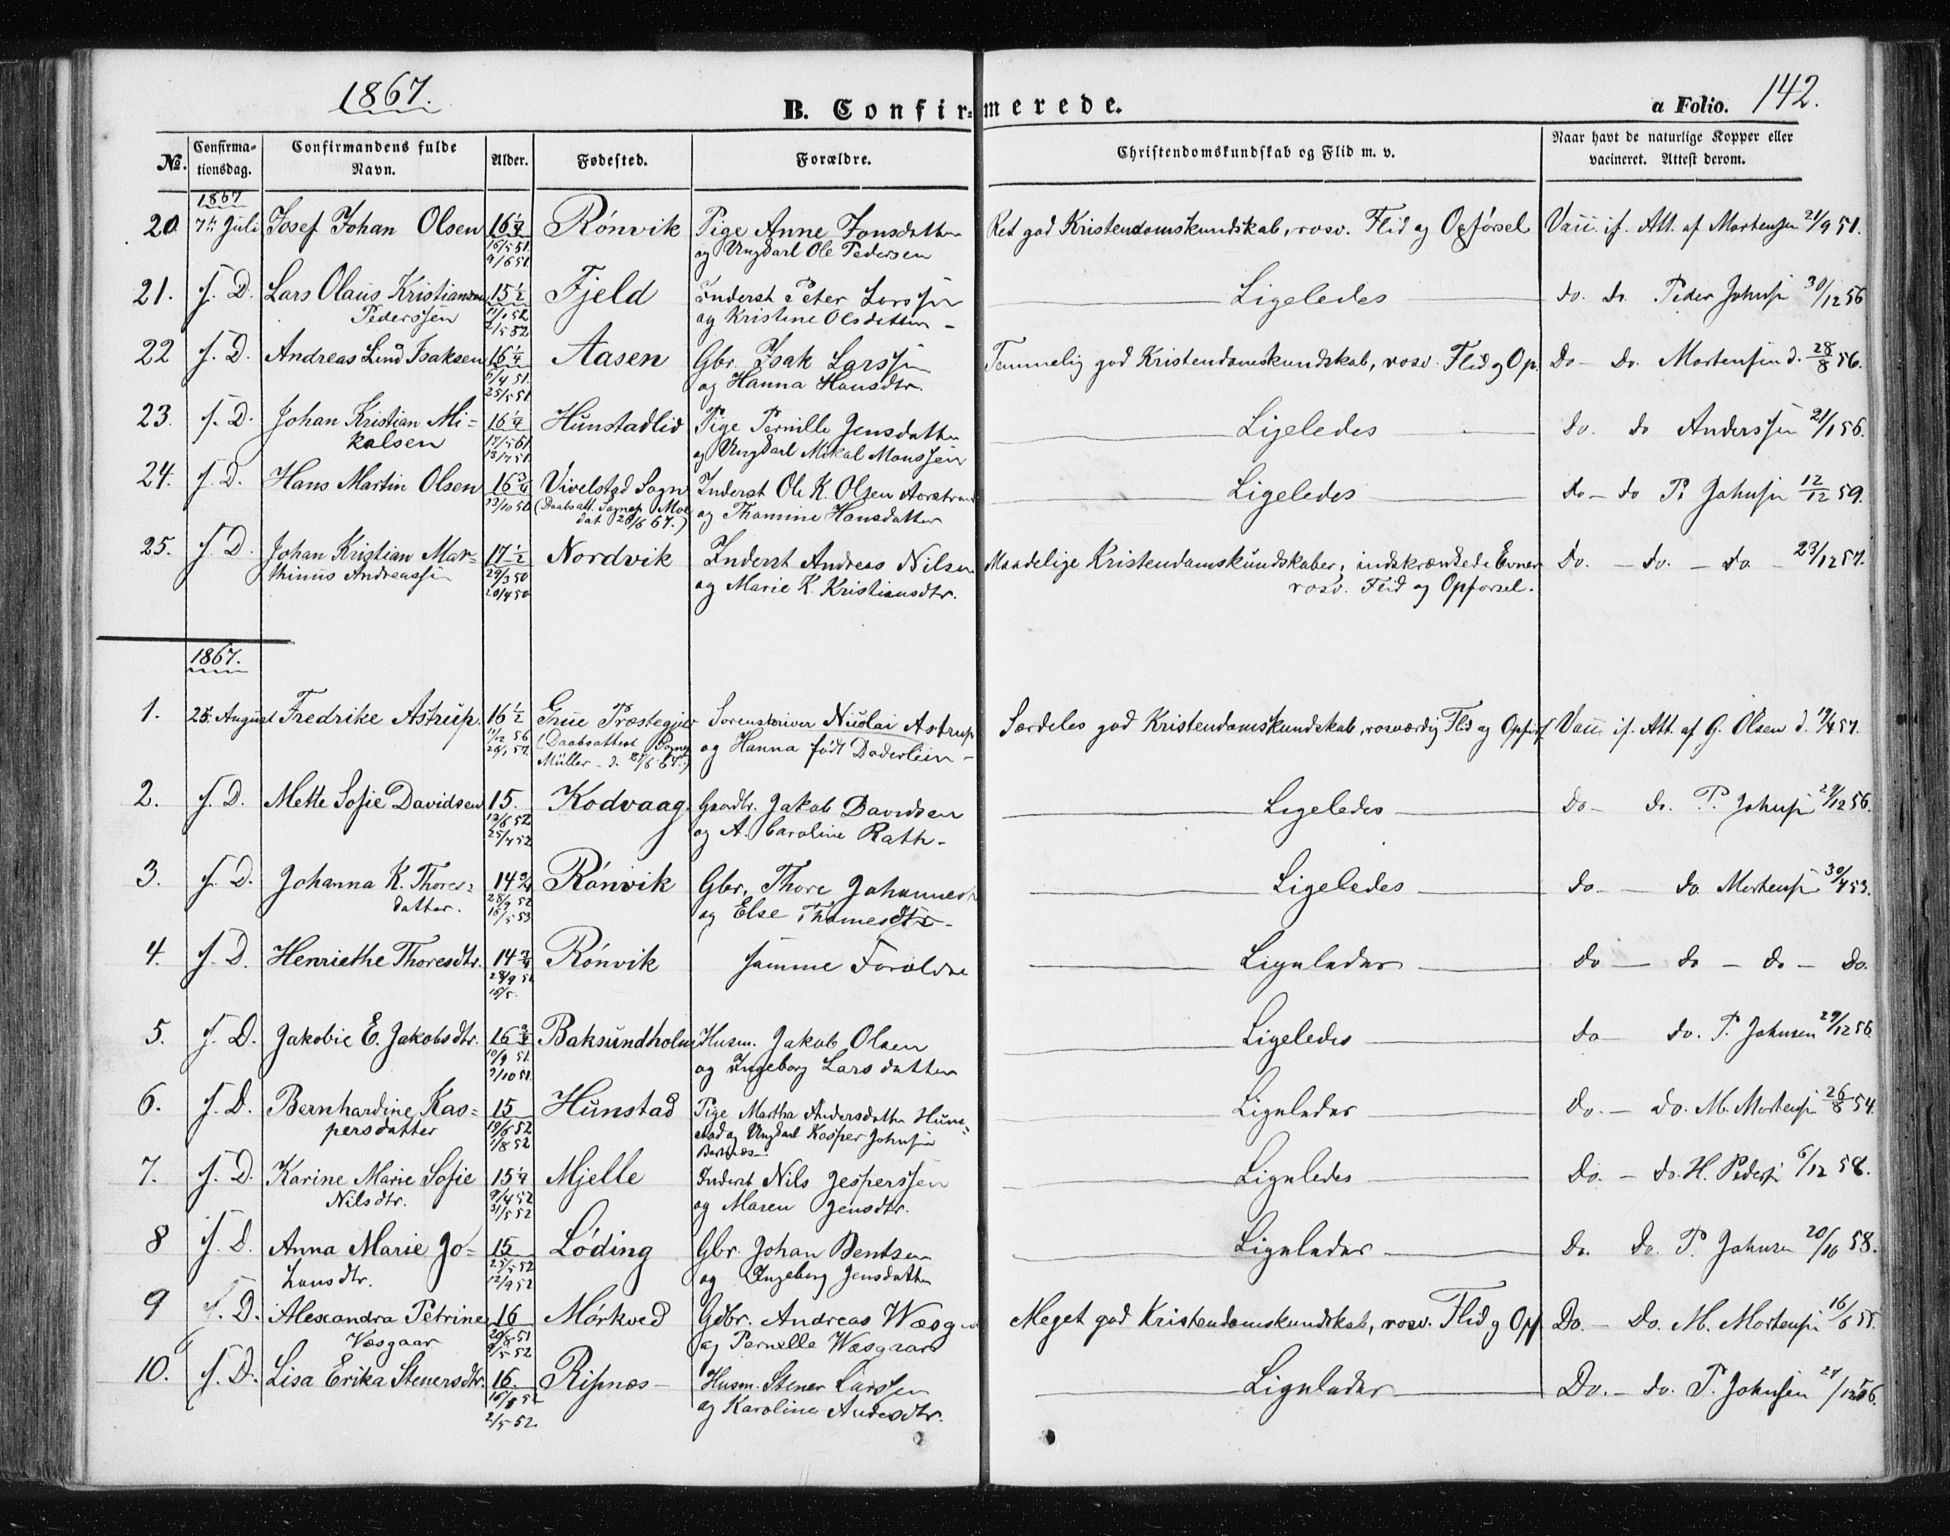 1867.
B. Confirmerede.
a Folio. 142.
No. Confirmationsdag. Confirmandens fulde Navn. Alder. Fødested. Forældre. Christendomskundskab og Flid m. v. Naar havt de naturlige Kopper eller vacineret. Attest derom.
1867
20. 7de Juli Josef Johan Olsen 16 1/4 Rönvik Pige Anne Jonsdatter Ret god Kristendomskundskab, rosv. Flid og Opförsel Vacc. if. Att. af Mortensen 21/9 51.
16/5 51. og Ungkarl Ole Pedersen
9/6 51.
21. s. D. Lars Olaus Kristiansen 15 1/2 Fjeld Inderst Peter Larssen Ligeledes do. do. Peder Johnsen 30/12 56
Pederssen og Kristine Olsdatter
2/5 52
22 s. D. Andreas Lind Isaksen 16 1/4 Aasen Gbr. Isak Larssen Temmelig god Kristendomskundskab, rosv. Flid og Op. Do - Do. Mortensen d. 28/8 56.
6/4 51. og Hanna Hansdtr.
25/5 51
23. s. D. Johan Kristian Mi- 16 1/4 Hunstadlid Pige Pernille Jensdatter Ligeledes do. do Anderssen 21/1 56.
kalsen 17/5 61 og Ungkarl Mikal Monssen
13/7 51.
24. s. D. Hans Martin Olsen 16 3/4 Vivelstad Sogn Inderst Ole K. Olsen Ligeledes do - do P. Johnsen 12/12 59.
(Daabsatt. Sognep. Moe og Thomine Hansdatter
dat. 28/6 67.)
25. s. D. Johan Kristian Mar- 17 1/2 Nordvik Inderst Andreas Nilsen Maadelige Kristendomskundskaber, indskrænkede Evner Do. - do. - do - 23/12 57.
thinus Andreassen 29/3 50 og Marie K. Kristiansdtr. rosv. Flid og Opförsel.
20/4 50
1867.
1. 25. August Fredrike Astrup. 16 1/2 Grue Præstegjel Sorenskriver Nicolai Astrup Særdeles god Kristendomskundskab, rosværdig Flid og Opförs Vacc if. Att. af G. Olsen d. 19/4 57.
(Daabsattest Sognep. og Hanna född Döderlein
Müller d. 6 67.)
2. s. D. Mette Sofie Davidsen 15. Kodvaag. Gaardbr. Jakob Davidsen Ligeledes do - do. P. Johnsen 29/12 56.
12/6 52 og A. Caroline Rath.
25/7 52
3. s. D. Johanna K. Thores- 14 3/4 Rönvik Gbr. Thore Johannes Ligeledes do - do Mortensen 30/4 53.
datter. 28/9 52 og Else Thomesdtr.
15/5 53
4. s. D. Henriethe Thoresdtr. 14 3/4 Rönvik samme Forældre Ligeledes do - do - do - Do.
28/9 52
15/5.
5. s. D. Jakobie E. Jakobsdtr. 16 3/4 Baksundholm Husm. Jakob Olsen Ligeledes do - do. P. Johnsen 29/12 56
10/9 51. og Ingeborg Larsdatter
9/10 51.
6. s. D. Bernhardine Kas- 15 Hunstad Pige Martha Andersdatter Hun- Ligeledes do. - do. M. Mortensen 26/8 54.
persdatter 19/6 52 stad og Ungkarl Kasper Johnsen
1/8 52
7. s. D. Karine Marie Sofie 15 1/4 Mjelle Inderst Nils Jesperssen Ligeledes do. - do. H. Peders 6/12 58.
Nilsdtr. 9/4 52 og Maren Jensdtr.
31/5 52
8 s. D. Anna Marie Jo- 15 Löding Gbr. Johan Bentsen Ligeledes do. do. P. Johnsen 20/10 58.
hansdtr. 25/5 52 og Ingeborg Jensdatter
12/9 52
9 s. D. Alexandra Petrine 16 Mörkved Gdbr. Andreas Wæsg Meget god Kristendomskundskab, rosv. Flid og Opf. Do. - Do. M. Mortensen 16/6 55.
Væsgaar og Pernelle Wæsgaar
9/5 52
10. s. D. Lisa Erika Stenersdtr. 16. Ripnæs Husm. Stener Larssen Ligeledes Do. - do. P. Johnsen 27/12 56.
og Karoline Andesdtr.
2/5 52.